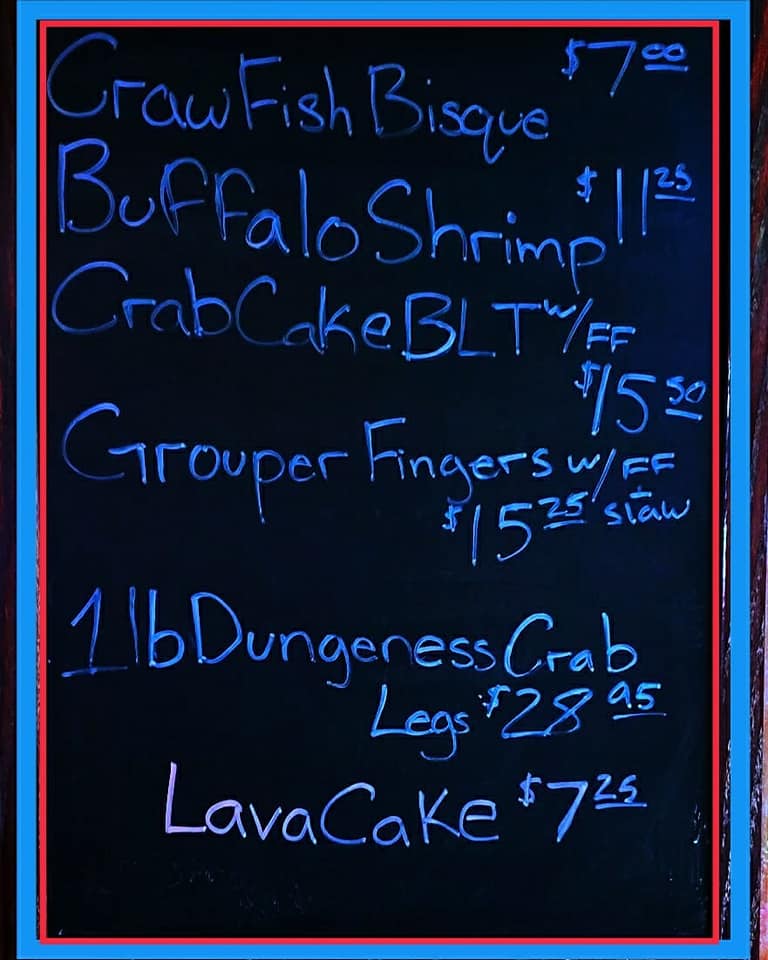 CrawFish Bisque $7.00
Buffalo Shrimp $11.25
Crab Cake BLT w/FF
$15.50
Grouper Fingers w/FF
$15.25 + slaw
1lb Dungeness Crab
Legs $28.95
Lava Cake $7.25